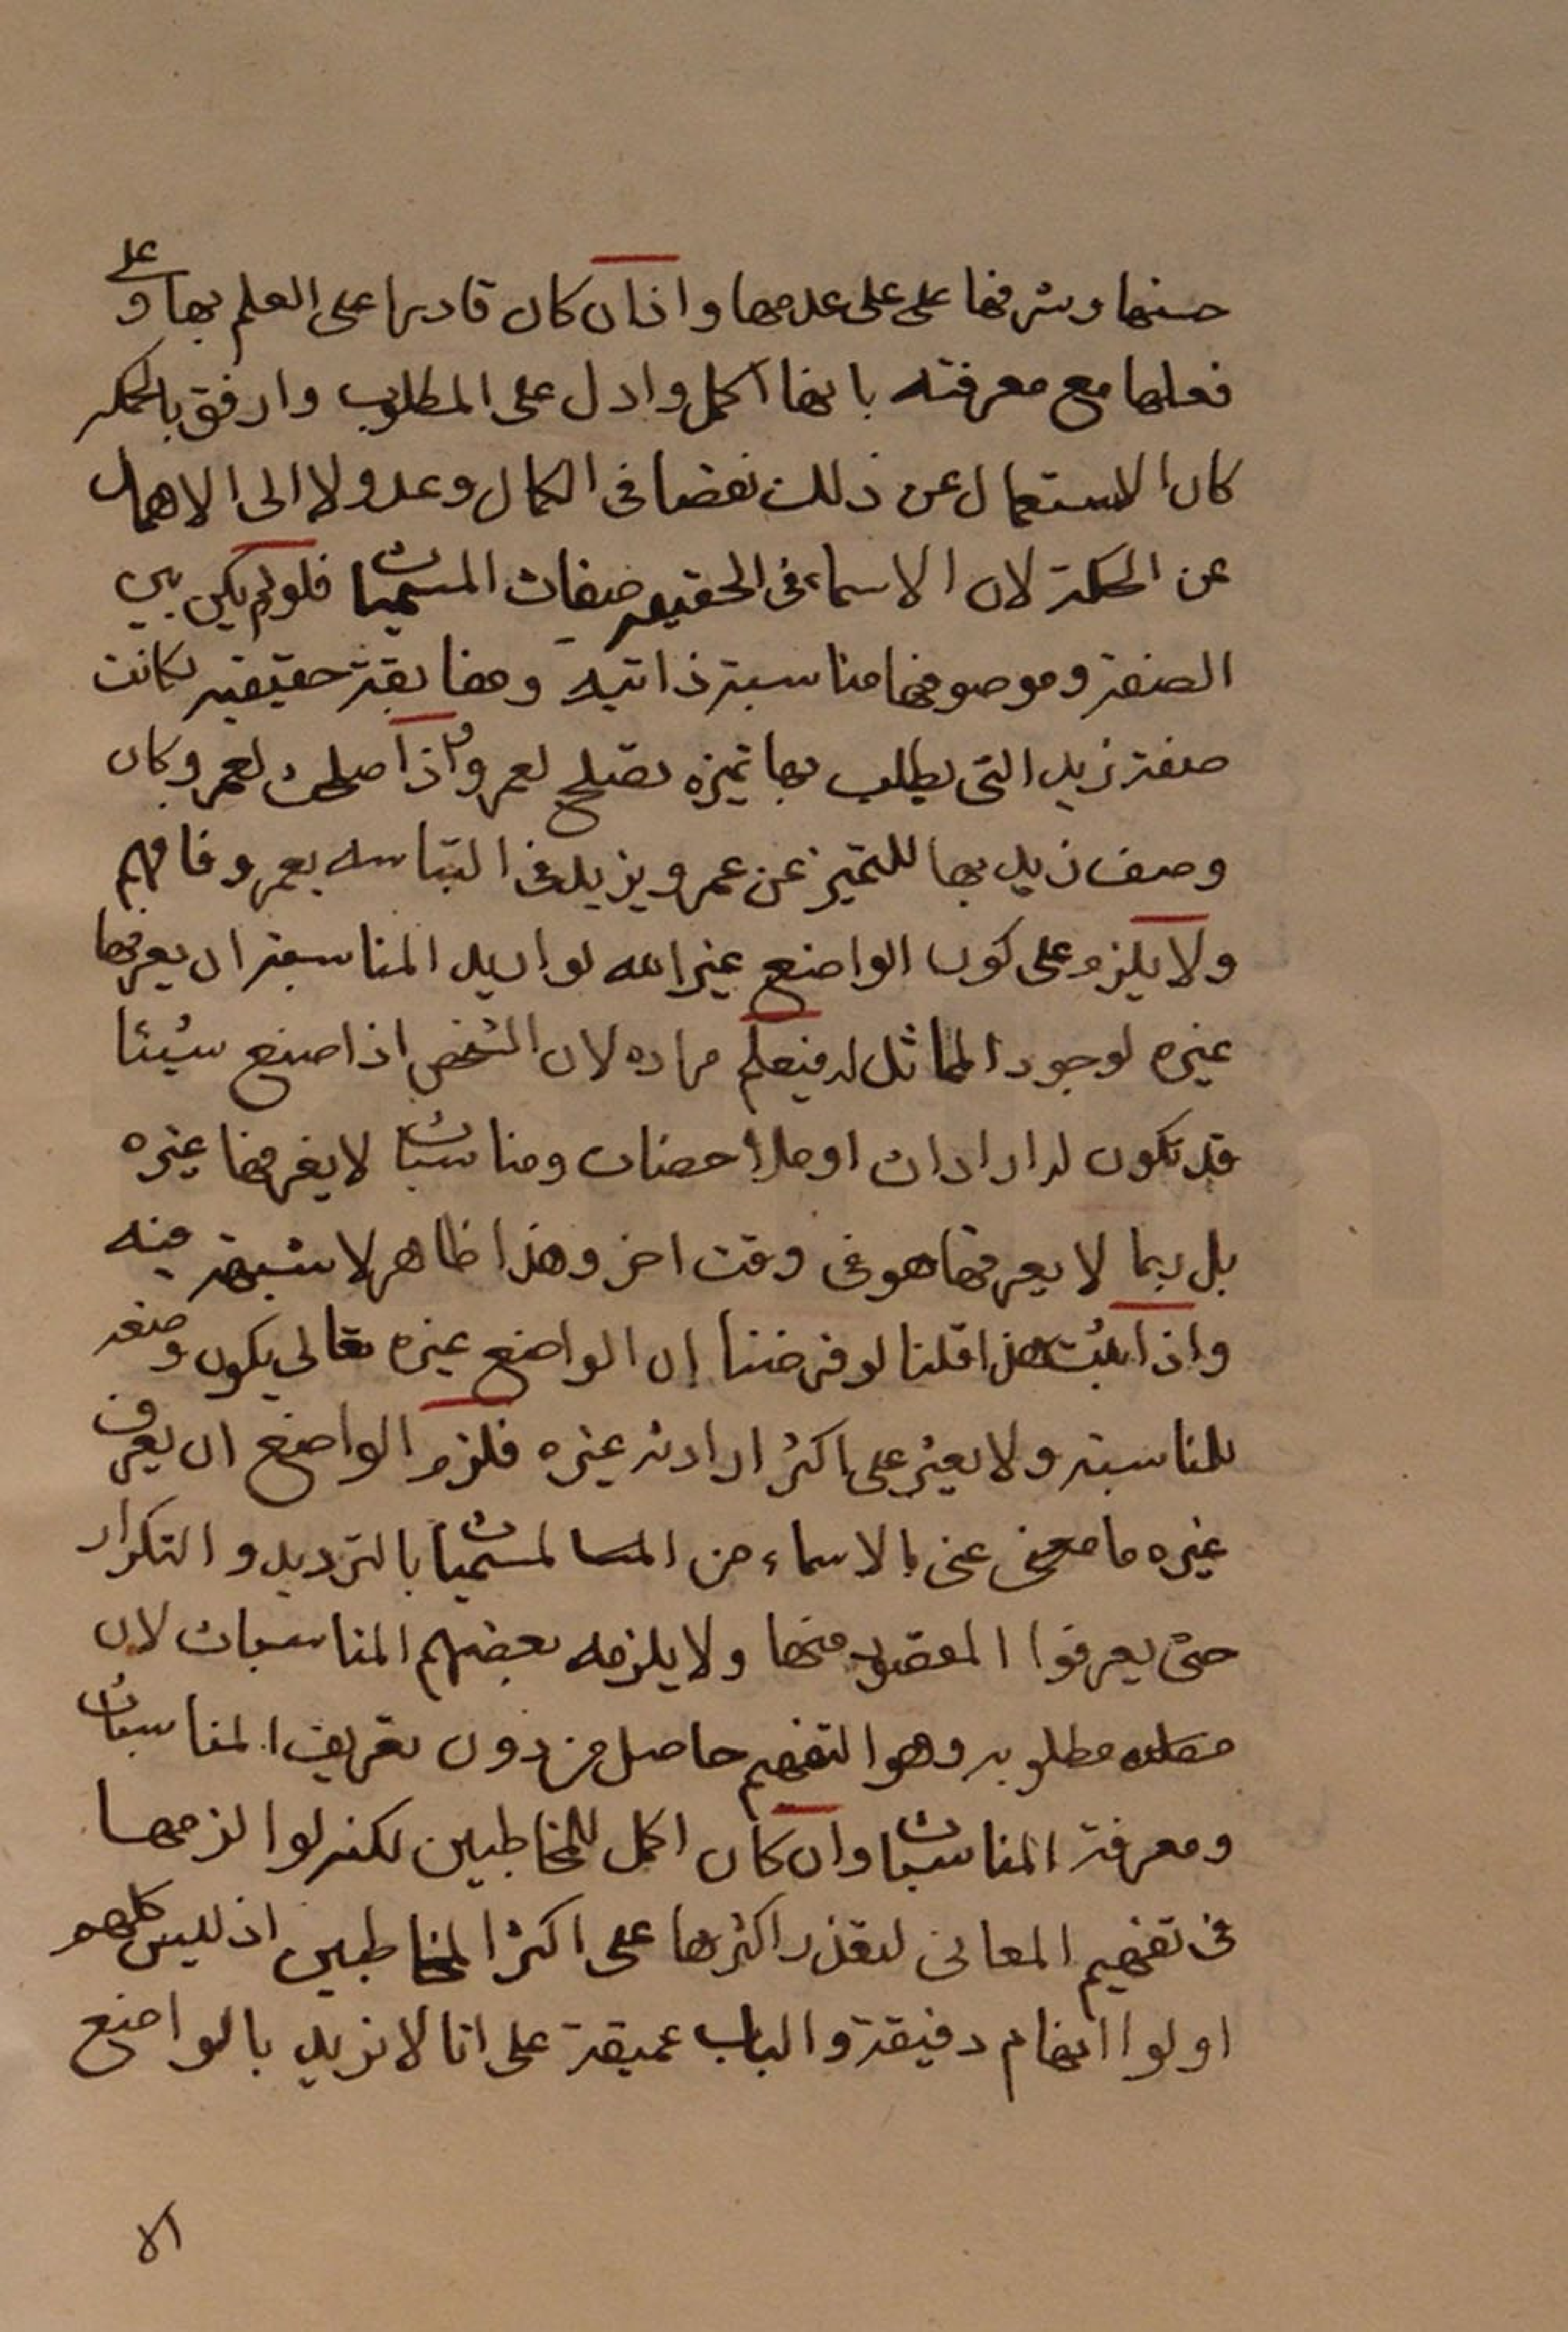 حسنها وشرفها على على عدمها واذا كان قادرا على العلم بها و على
فعلها مع معرفته بانها اكمل وادل على المطلوب وارفق بالحكمة
كان الاستعمال عن ذلك نقصا فى الكمال وعدولا الى الاهمال
عن الحكمة لان الاسماء فى الحقيقة صفات المسميات فلو لم يكن بين
الصفة وموصوفها مناسبة ذاتيه ومطابقة حقيقية لكانت
صفة زيد التى يطلب بها تميزه تصلح لعمرو واذا صلحت لعمرو كان
وصف زيد بها للتميز عن عمرو يزيد فى التباسه بعمرو فافهم
ولا يلزم على كون الواضع غير الله لو اريد المناسبة ان يعرفها
غيره لوجود المماثل له فيعلم مراده لان الشخص اذا صنع شيئا
قد تكون له ارادات او ملاحضات ومناسبات لا يعرفها غيره
بل ربما لا يعرفها هو فى وقت اخر وهذا ظاهر لا شبهة فيه
واذا ثبت هذا قلنا لو فرضنا ان الواضع غيره تعالى يكون وضعه
للمناسبة ولا يعثر على اكثر ارادته غيره فلزم الواضع ان يعرف
غيره ما معنى عنى بالاسماء من المسا لمسميات بالترديد والتكرار
حتى يعرفوا المقصود منها ولا يلزمه تعريفهم المناسبات لان
مطلوبه وهو التفهيم حاصل من دون تعريف المناسبات
ومعرفة المناسبات وان كان اكمل للمخاطبين لكنه لو الزمها
فى تفهيم المعانى لتعذر اكثرها على اكثر المخاطبين اذ ليس كلهم
اولوا افهام دقيقة والباب عميقة على انا لا نريد بالواضع
الا